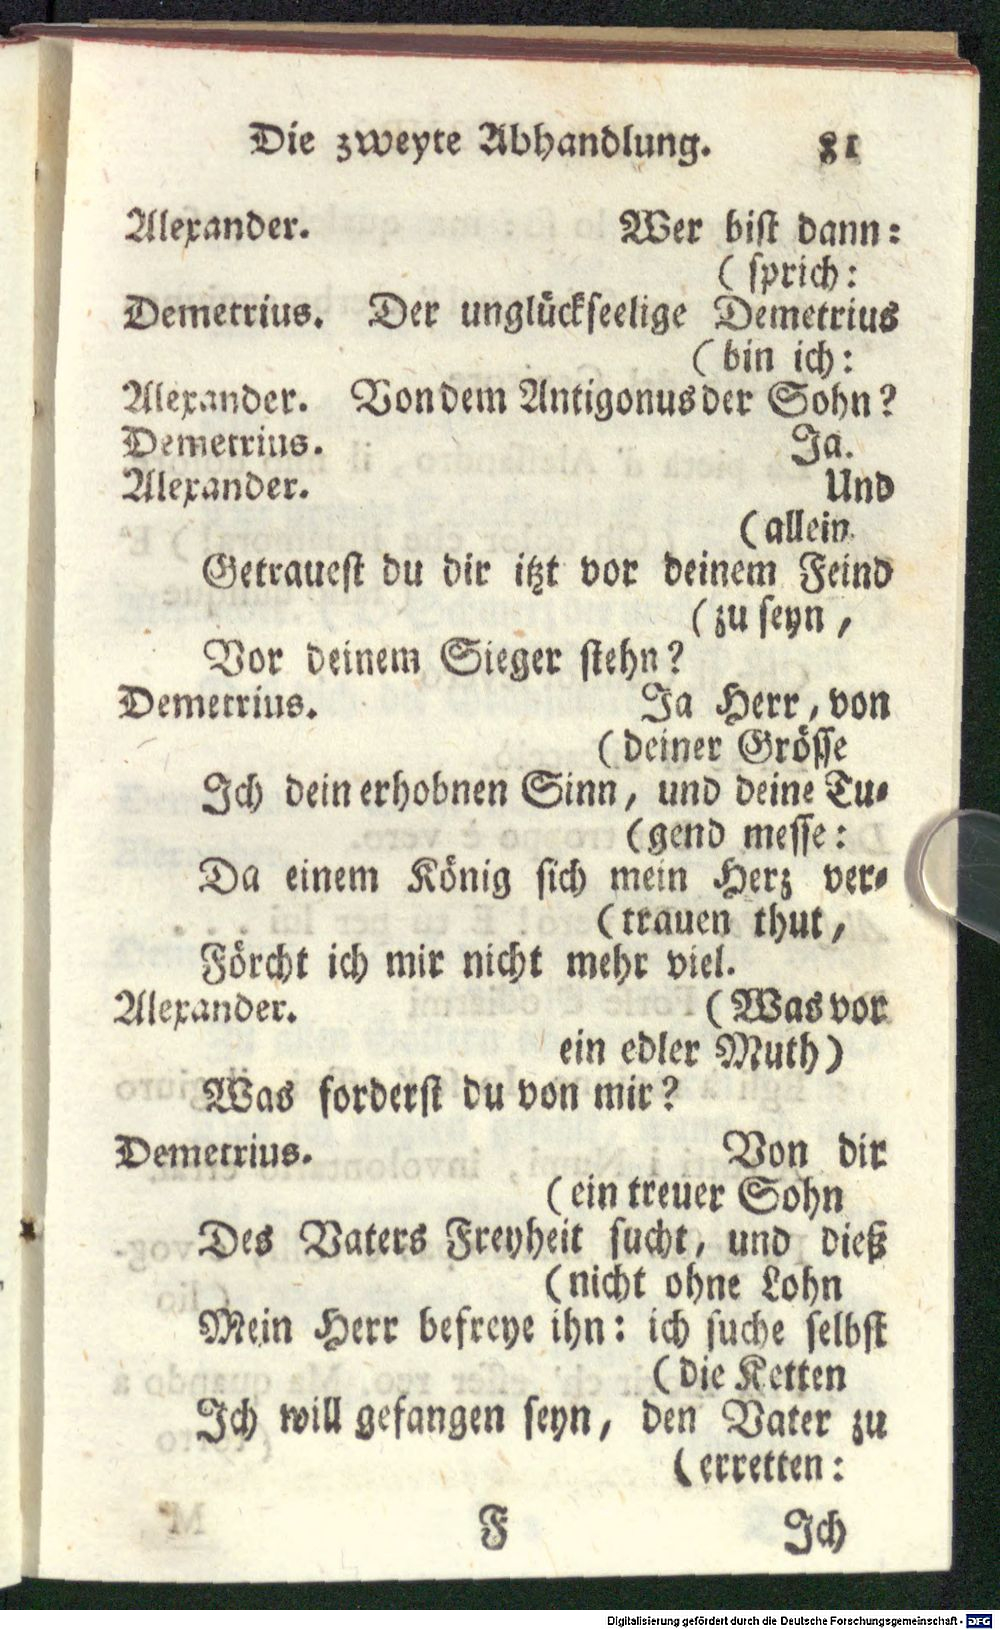 Die zweyte Abhandlung. 81
Alexander. Wer bist dann:
(sprich:
Demetrius. Der unglückseelige Demetrius
(bin ich:
Alexander. Von dem Antigonus der Sohn?
Demetrius. Ja.
Alexander. Und
(allein
Getrauest du dir itzt vor deinem Feind
(zu seyn,
Vor deinem Sieger stehn?
Demetrius. Ja Herr, von
(deiner Grösse
Ich dein erhobnen Sinn, und deine Tu-
(gend messe:
Da einem König sich mein Herz ver-
(trauen thut,
Förcht ich mir nicht mehr viel.
Alexander. (Was vor
ein edler Muth)
Was forderst du von mir?
Demetrius. Von dir
(ein treuer Sohn
Des Vaters Freyheit sucht, und dieß
(nicht ohne Lohn
Mein Herr befreye ihn: ich suche selbst
(die Ketten
Ich will gefangen seyn, den Vater zu
(erretten:
F Ich
Digitalisierung gefördert durch die Deutsche Forschungsgemeinschaft - DFG